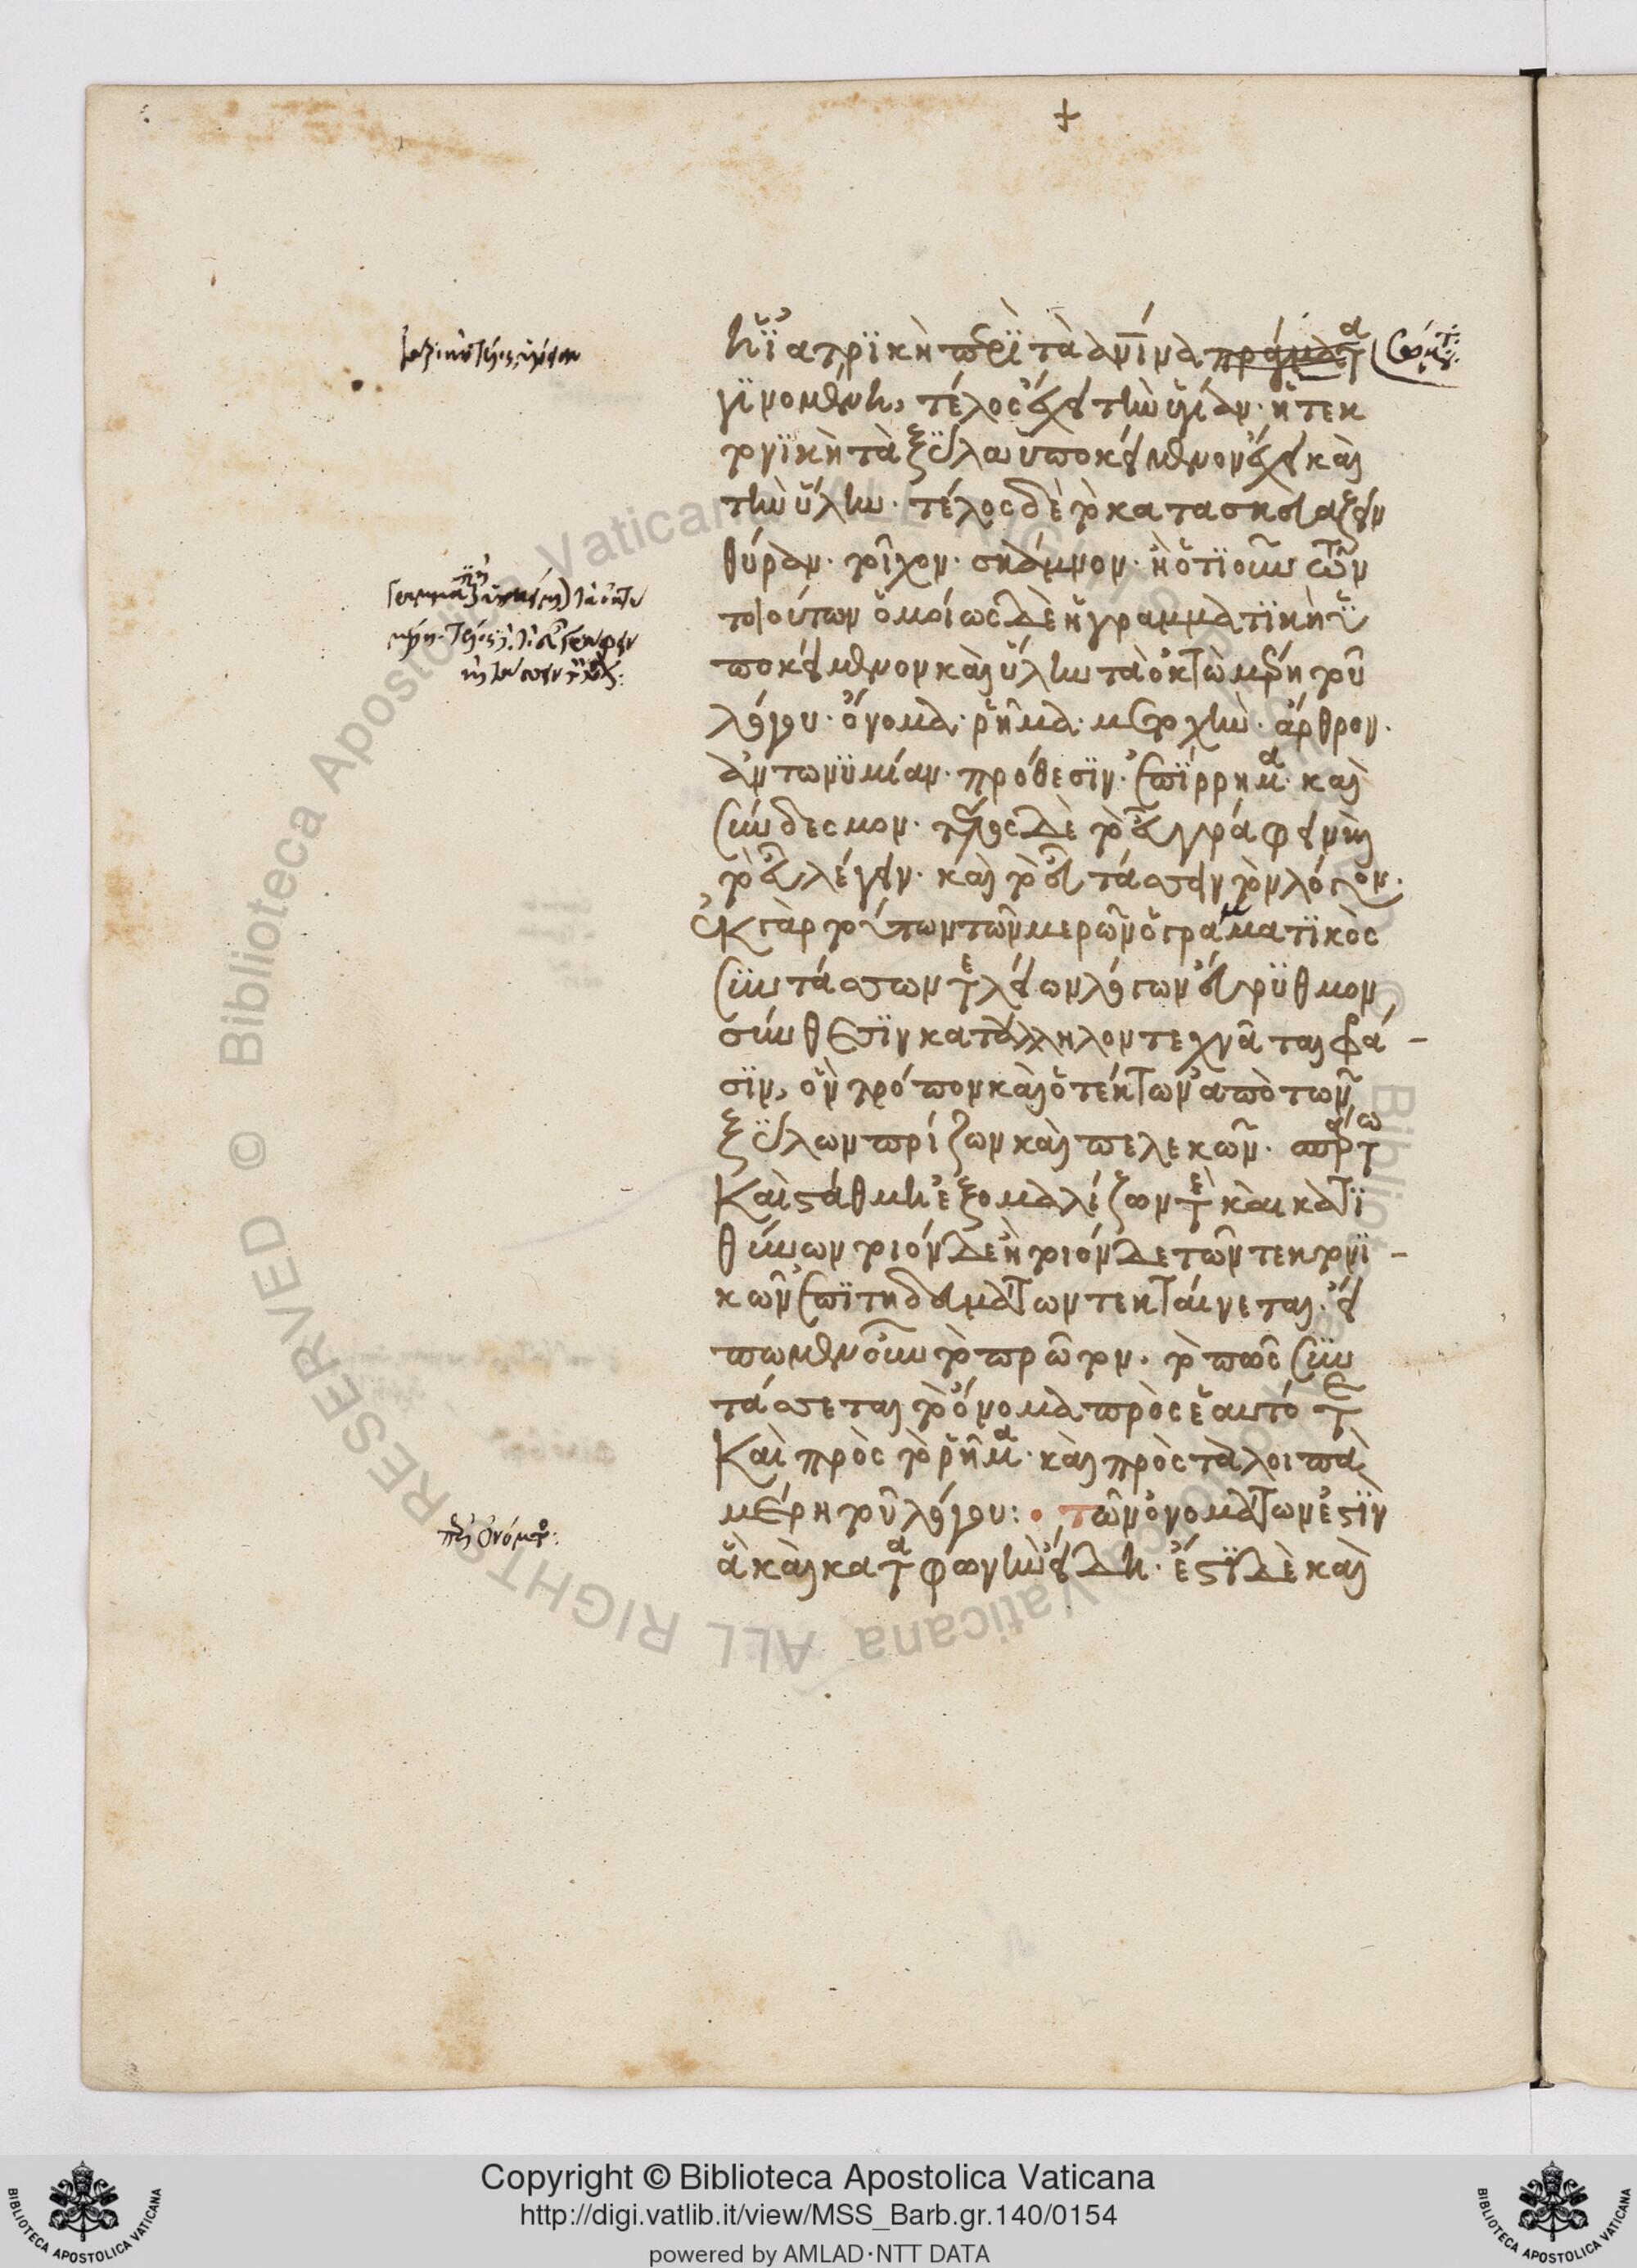 +
ἡ ἰατρϊκὴ περὶ τὰ ἀνϊμα πράγματα σώματα
γϊνομένη, τέλος ἔχει τὴν ὑγίαν· ἡ τεκ
τονϊκὴ τὰ ξύλα ὑποκείμενον ἔχει καὶ
τὴν ὕλην· τέλος δὲ τὸ κατασκευάζειν
θύραν· τοῖχον· σκάμνον· ἢ ὅτϊοῦν τῶν
τοιούτων ὁμοίως δὲ ἡ γραμματϊκὴ ὑ
ποκείμενον καὶ ὕλην τὰ ὀκτὼ μέρη τοῦ
λόγου· ὄνομα· ῥῆμα· μετοχὴν· ἄρθρον·
ἀντωνϋμίαν· πρόθεσϊν· ἐπϊρρημα· καὶ
σύνδεσμον· τέλος δὲ τὸ εὖ γράφειν καὶ
τὸ εὖ λέγειν· καὶ τὸ εὖ τάσσειν τὸν λόγον·
ἐκ γὰρ τούτων τῶν μερῶν ὁ γραμματϊκὸς
συντάσσων τελείων λόγων εὔρϋθμον
σύνθεσϊν κατάλληλον τεχνᾶται φά-
σϊν, ὃν τρόπον καὶ ὁ τέκτων ἀπὸ τῶν
ξύλων πρίζων καὶ πελεκῶν·
Καὶ στάθμη ἐξομαλίζων τὲ καὶ κατϊ
θύνων τοιόνδε ἢ τοιόνδε τῶν τεκτονϊ-
κῶν ἐπϊτηδευμάτων τεκταίνεται· εἴ
πωμεν οὖν τὸ πρῶτον· τὸ πῶς συν
τάσσεται τὸ ὄνομα πρὸς ἑαυτό τε
Καὶ πρὸς τὸ ῥῆμα· καὶ πρὸς τὰ λοιπὰ
μέρη τοῦ λόγου: • τῶν ὀνομάτων ἐστϊν
ἃ καὶ κατὰ φωνὴν εἴδη· ἔστϊ δὲ καὶ
περὶ ὀνόματος:
Copyright © Biblioteca Apostolica Vaticana
http://digi.vatlib.it/view/MSS_Barb.gr.140/0154
powered by AMLAD·NTT DATA
BIBLIOTECA APOSTOLICA VATICANA
BIBLIOTECA APOSTOLICA VATICANA